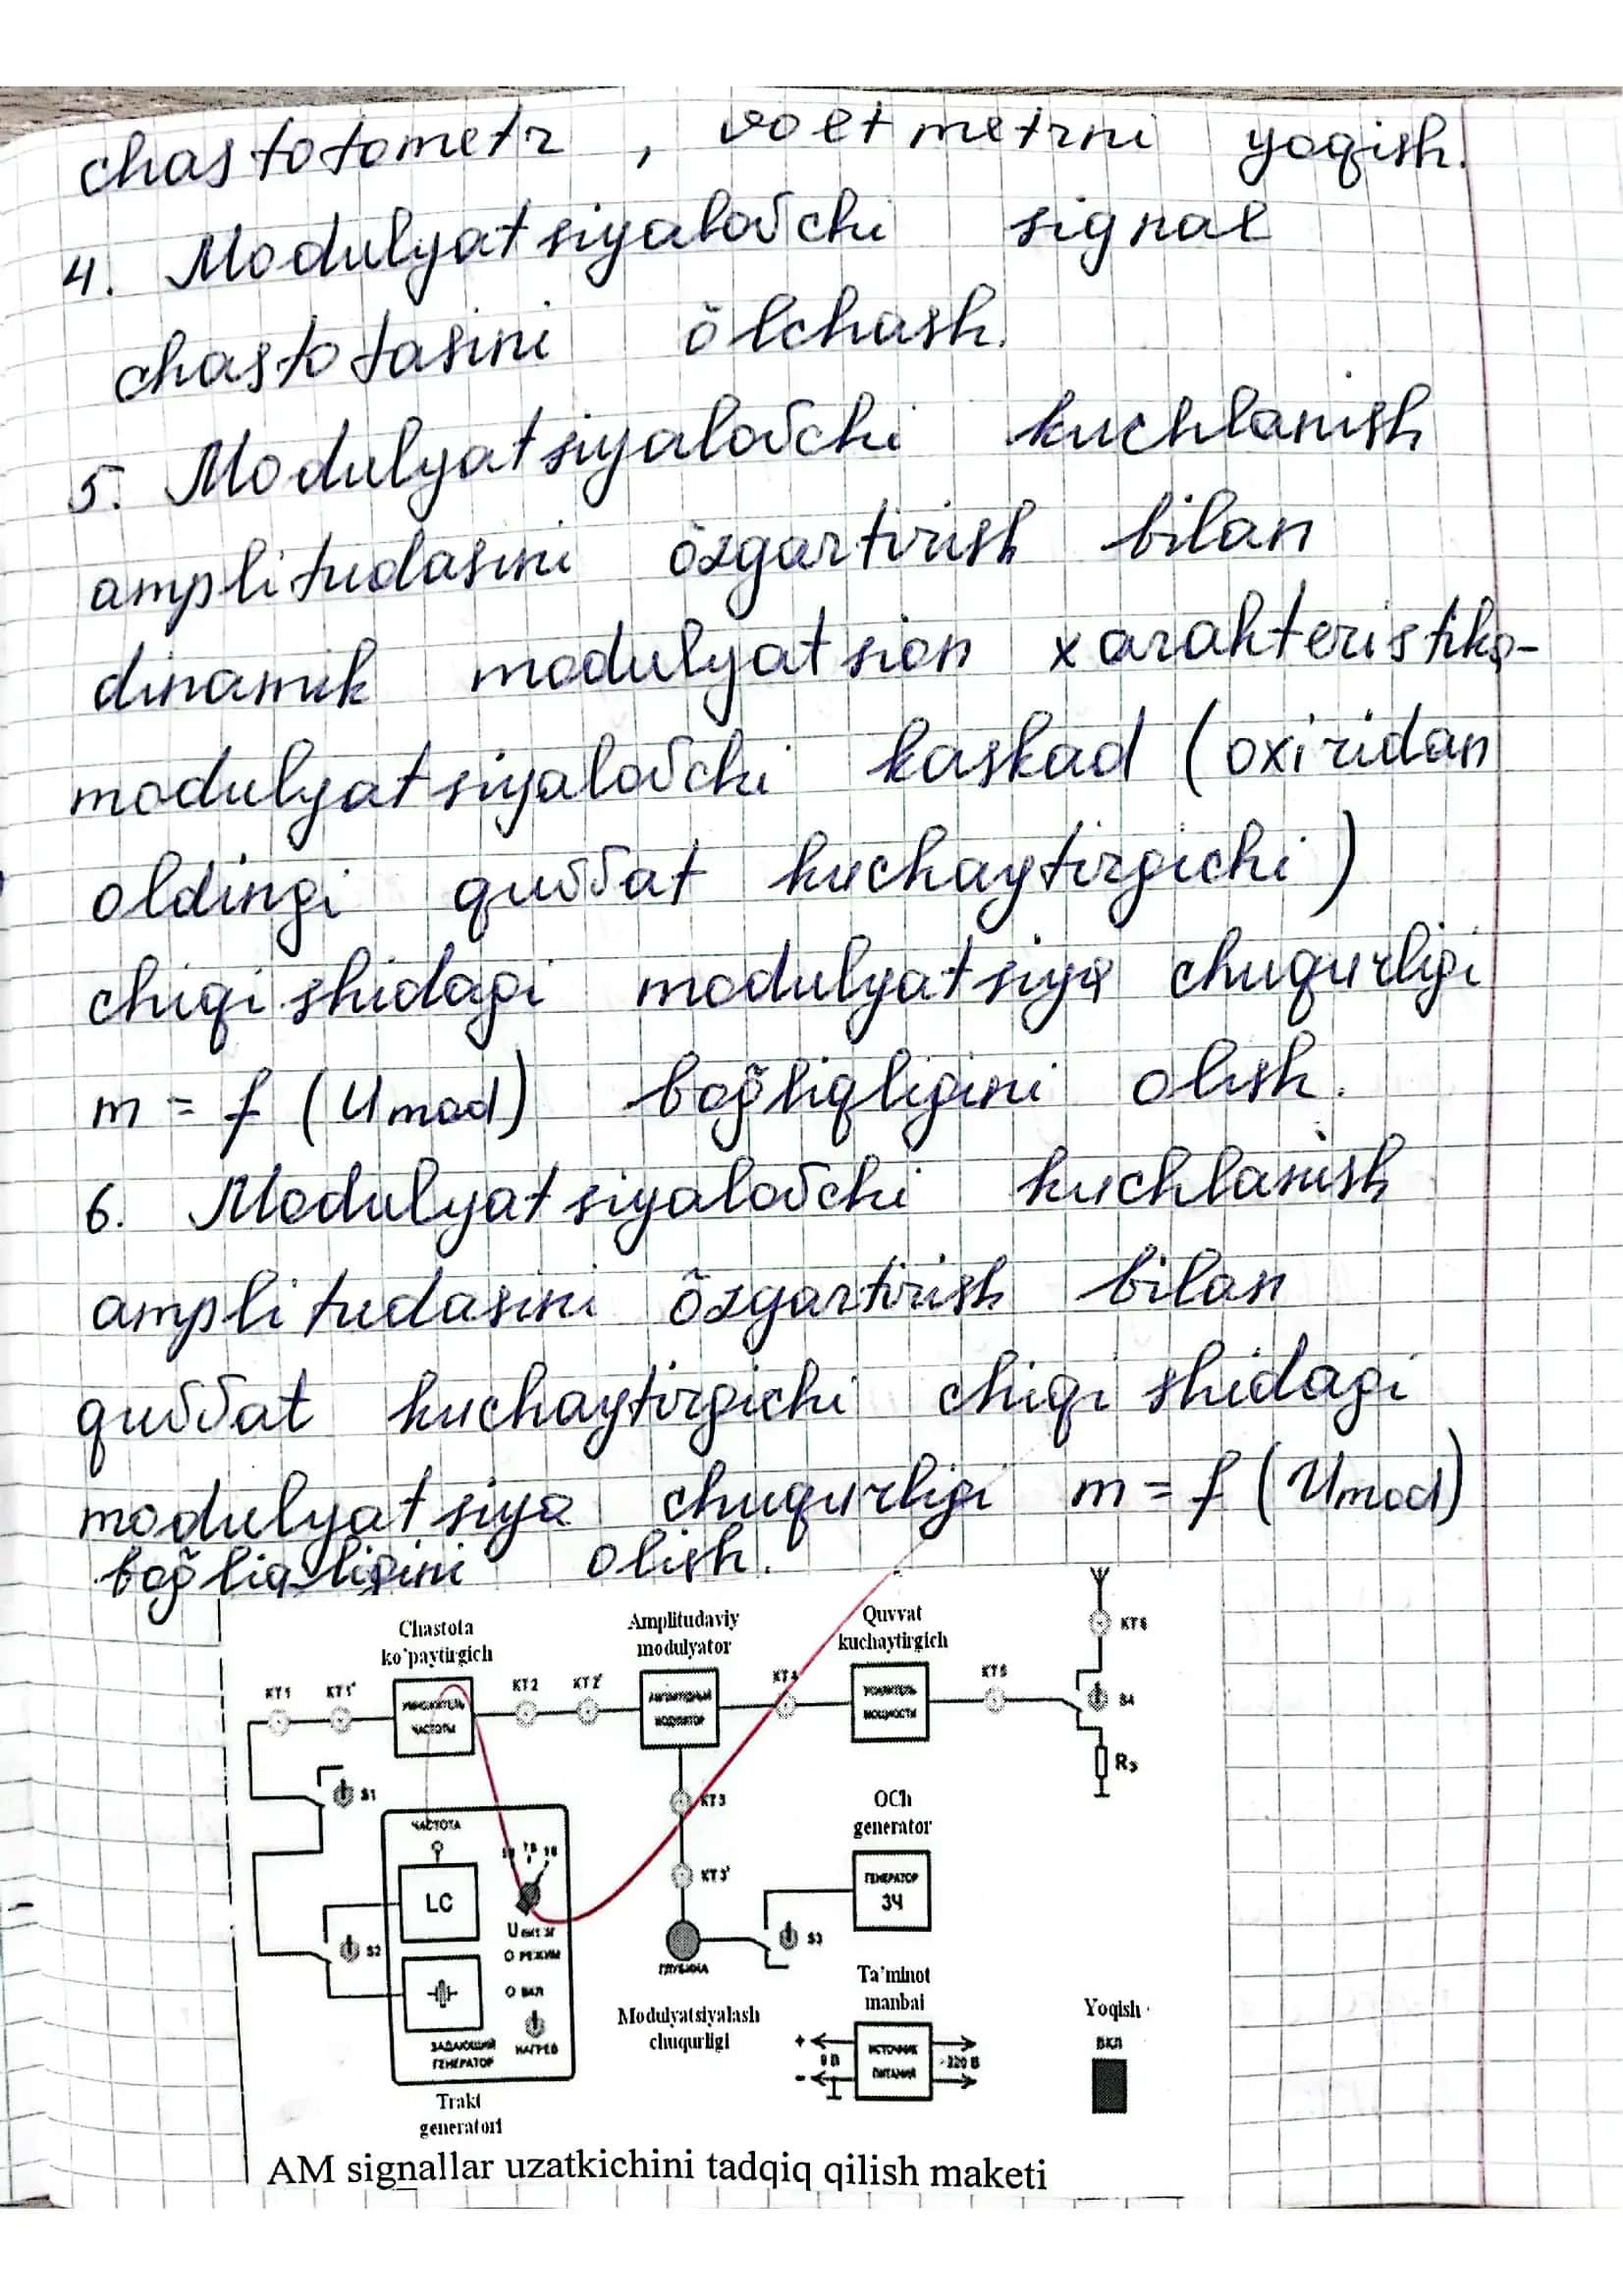 chastotometr, voltmetrni yoqish.
4. Modulyatsiyalovchi signal
chastotasini õlchash.
5. Modulyatsiyalovchi kuchlanish
amplitudasini õzgartirish bilan
dinamik modulyatsion xarakteristika-
modulyatsiyalovchi kaskad (oxiridan
oldingi quvvat kuchaytirgichi)
chiqishidagi modulyatsiya chuqurligi
m = f (Umod) bog̃liqligini olish.
6. Modulyatsiyalovchi kuchlanish
amplitudasini õzgartirish bilan
quvvat kuchaytirgichi chiqishidagi
modulyatsiya chuqurligi m = f (Umod)
bog̃liqligini olish.
Chastota
ko'paytirgich
Amplitudaviy
modulyator
Quvvat
kuchaytirgich
KT6
KT1 KT1' KT2 KT2' KT4 KT5
УМНОЖИТЕЛЬ
ЧАСТОТЫ
АМПЛИТУДНЫЙ
МОДУЛЯТОР
УСИЛИТЕЛЬ
МОЩНОСТИ
S4
R э
S1
KT3
OCh
generator
ЧАСТОТА
KT3'
ГЕНЕРАТОР
ЗЧ
LC
U вых зг
S2
О РЕЖИМ
S3
ГЛУБИНА
О ВКЛ
Ta'minot
manbai
Modulyatsiyalash
chuqurligi
Yoqish
ВКЛ
ЗАДАЮЩИЙ
ГЕНЕРАТОР
НАГРЕВ
+
-
ИСТОЧНИК
ПИТАНИЯ
~220 В
Trakt
generatori
AM signallar uzatkichini tadqiq qilish maketi